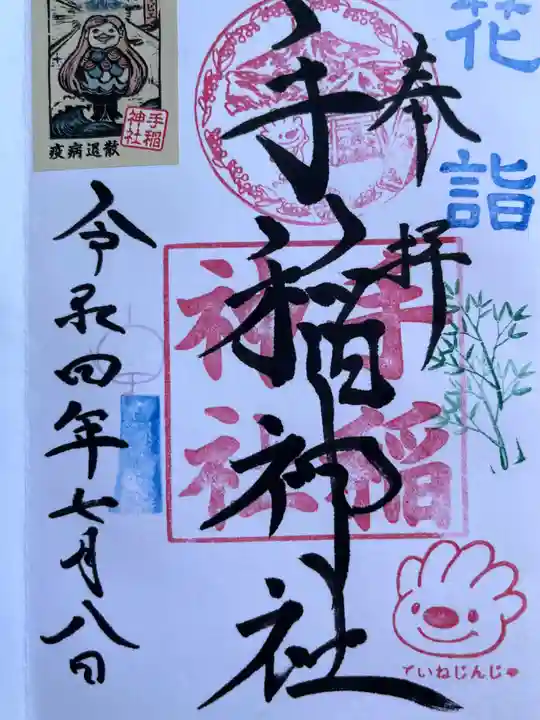 花
詣
奉拝
手稲神社
手稲
神社
令和四年七月八日
手稲
神社
疫病退散
ていねじんじゃ